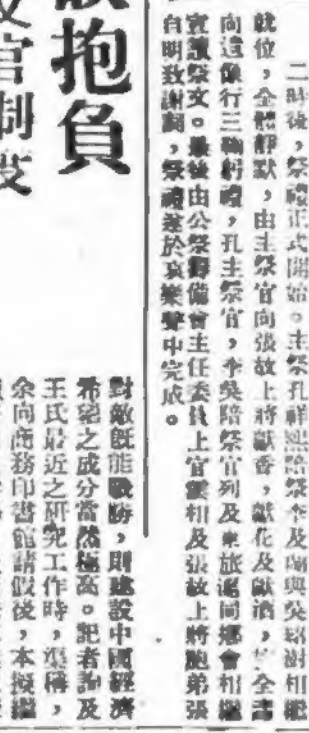 二時後，祭禮正式開始。主祭孔祥熙陪祭李及蘭與吳紹澍相繼
就位，全體靜默，由主祭官向張故上將獻香，獻花及獻酒，全
向遺像行三鞠躬禮，孔主祭官，李吳陪祭官列及東旅滬同鄉會相繼
宣讀祭文。最後由公祭籌備會主任委員上官雲相及張故上將胞弟張
自明致謝詞，祭禮遂於哀樂聲中完成。
抱負
官制
對敵既能戰勝，則建設中國經濟
希望之成分當然極高。記者詢及
王氏最近之研究工作時，據稱，
余向商務印書館請假後，本擬繼